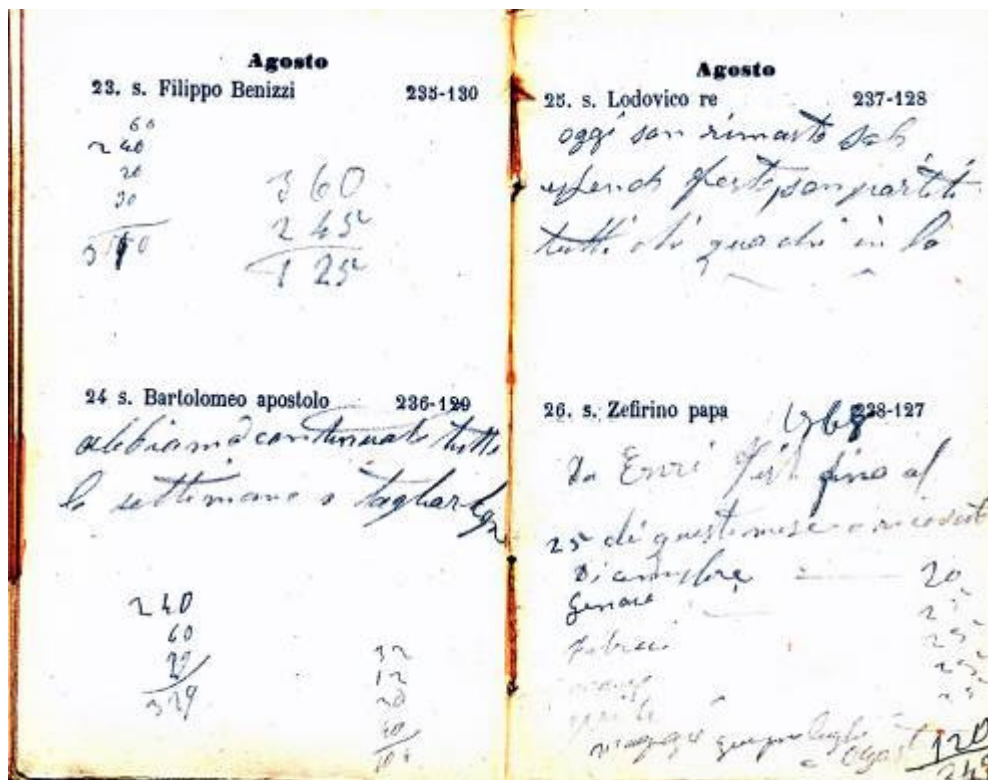 Agosto
23. s. Filippo Benizzi 235-130
60
240
20
30
360
245
125
24 s. Bartolomeo apostolo 236-129
abbiamo continuato tutto
la settimana a tagliar
240
60
29
329
32
12
20
40
Agosto
25. s. Lodovico re 237-128
oggi son rimasto
son partiti
tutti chi qua chi in la
26. s. Zefirino papa 238-127
fino al
25 di questo mese o ricevut
Dicembre 20
Genaro 25
Febraio 25
25
aprile 25
maggio giugno luglio
e Agost 120
245